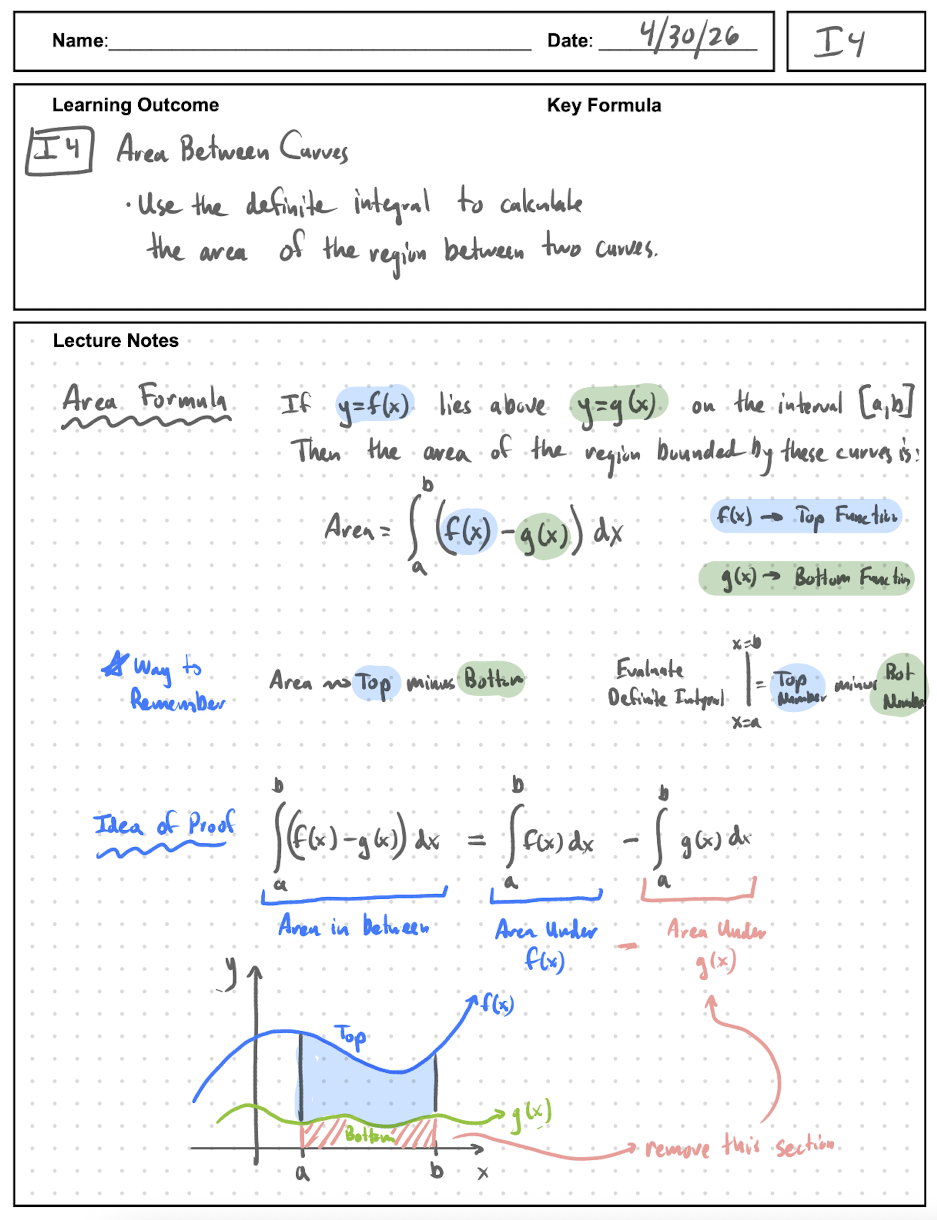 Name: Date: 4/30/26 I4
Learning Outcome Key Formula
I4 Area Between Curves
• Use the definite integral to calculate
the area of the region between two curves.
Lecture Notes
Area Formula If y=f(x) lies above y=g(x) on the interval [a,b]
Then the area of the region bounded by these curves is:
Area = ∫_a^b (f(x) - g(x)) dx f(x) → Top Function
g(x) → Bottom Function
☆ Way to Remember
Area ⇝ Top minus Bottom
Evaluate Definite Integral |_{x=a}^{x=b} = Top Number minus Bot Number
Idea of Proof ∫_a^b (f(x) - g(x)) dx = ∫_a^b f(x) dx - ∫_a^b g(x) dx
Area in between
Area Under f(x)
–
Area Under g(x)
y
f(x)
Top
g(x)
Bottom
remove this section.
a b x